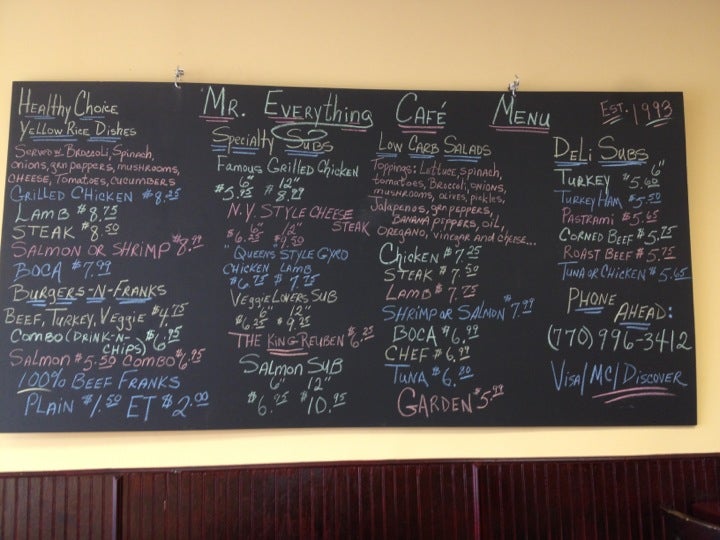 Mr. Everything Café Menu
Est. 1993
Healthy Choice
Yellow Rice Dishes
Served w/ Broccoli, Spinach,
onions, grn peppers, mushrooms,
cheese, Tomatoes, cucumbers
Grilled Chicken $8.25
Lamb $8.75
Steak $8.50
Salmon or Shrimp $8.99
Boca $7.99
Burgers-N-Franks
Beef, Turkey, Veggie $4.75
Combo (Drink-n-chips) $6.95
Salmon $5.50 Combo $6.95
100% Beef Franks
Plain $1.50 ET $2.00
Specialty Subs
Famous Grilled Chicken
6" 12"
$5.95 $8.99
N.Y. Style Cheese
Steak
6" 12"
$6.25 $9.50
"Queens Style Gyro
Chicken Lamb
$6.75 $7.75
Veggie Lovers Sub
6" 12"
$6.25 $9.25
The King Reuben $6.25
Salmon Sub
6" 12"
$6.95 $10.95
Low Carb Salads
Toppings: Lettuce, spinach,
tomatoes, Broccoli, onions,
mushrooms, olives, pickles,
Jalapenos, grn peppers,
Banana peppers, oil,
oregano, vinegar and cheese...
Chicken $7.25
Steak $7.50
Lamb $7.75
Shrimp or Salmon $7.99
Boca $6.99
Chef $6.99
Tuna $6.80
Garden $5.99
Deli Subs
6"
Turkey $5.60
Turkey Ham $5.50
Pastrami $5.65
Corned Beef $5.75
Roast Beef $5.75
Tuna or Chicken $5.65
Phone
Ahead:
(770) 996-3412
Visa/MC/Discover